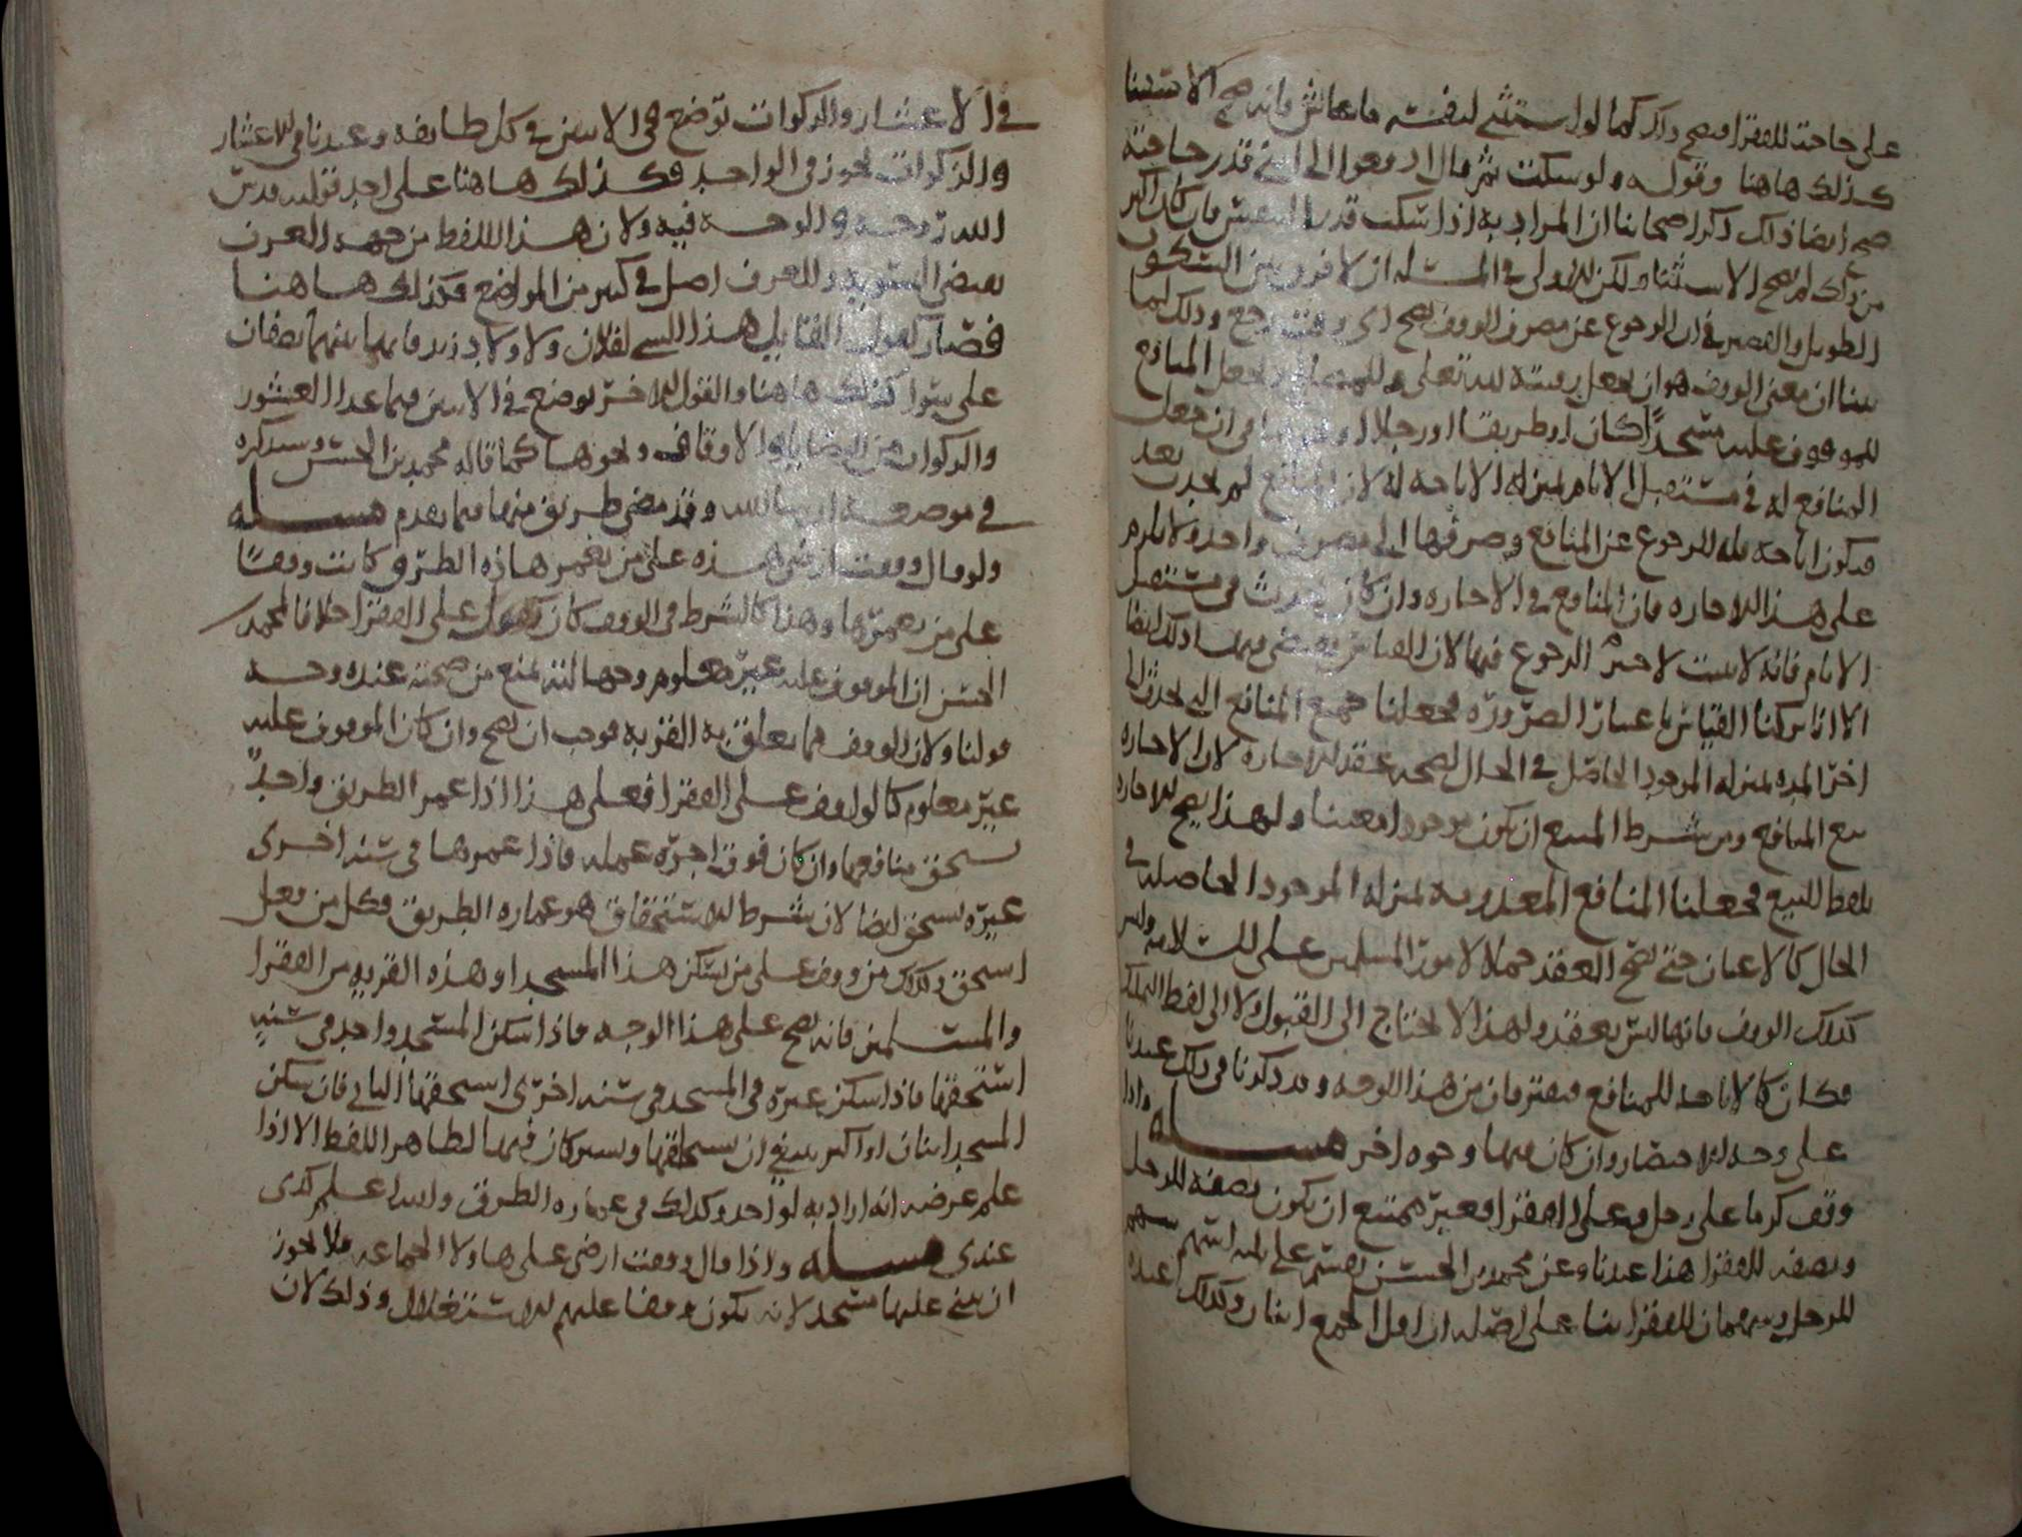 على حاجته للفقرا فيصح ذلك كما لو استثنى لنفسه ما عاش فانه يصح الاستثنا
كذلك هاهنا وقوله ولو سكت ثم قال ادفعوا الى ابني قدر حاجته
صح ايضا ذلك ذكر اصحابنا ان المراد به اذا سكت قدر النفس فان كان اكثر
من ذلك لم يصح الاستثنا ولكن الاولى في المسئلة ان لا فرق بين السكوت
الطويل والقصير في ان الرجوع عن مصرف الوقف يصح اي وقت رجع وذلك لما
بينا ان معنى الوقف هو ان يجعل رقبته لله تعلى وللمصالح ويجعل المنافع
للموقوف عليه مسجدًا كان او طريقا او رجلا او في ان جعل
المنافع له في مستقبل الايام بمنزلة الاباحة له لان المنافع لم تحدث بعد
فيكون اباحة فله الرجوع عن المنافع وصرفها الى مصرف واحد ولا يلزم
على هذا الاجارة فان المنافع في الاجارة وان كان يحدث في مستقبل
الايام فانه لا يثبت لاخر الرجوع فيها لان القياس يقتضي فيها ذلك ايضا
الا انا تركنا القياس باعتبار الضرورة فجعلنا جميع المنافع التي تحدث الى
اخر المدة بمنزلة الموجود الحاصل في الحال لصحة عقد الاجارة لان الاجارة
بيع المنافع ومن شرط المبيع ان يكون موجودا معينا ولهذا يصح الاجارة
بلفظ البيع فجعلنا المنافع المعدومة بمنزلة الموجود الحاصلة في
الحال كالاعيان حتى يصح العقد حملا لامور المسلمين على السلامة وليس
كذلك الوقف فانها ليس بعقد ولهذا لا يحتاج الى القبول ولا الى لفظ التمليك
فكان كالاباحة للمنافع فيفترقان من هذا الوجه وقد ذكرنا في ذلك عندنا
على وجه الاختصار وان كان فيها وجوه اخر مسئلة واذا
وقف كرما على رجل وعلى الفقرا فغير ممتنع ان يكون نصفه للرجل
ونصفه للفقرا هذا عندنا وعن محمد بن الحسن يقسم على ثلثة اسهم سهم
للرجل وسهمان للفقرا بنا على اصله ان اقل الجمع اثنان وكذلك عنده
في الاعشار والزكوات توضع في الاثنين في كل طايفه وعندنا في الاعشار
والزكوات يجوز في الواحد فكذلك هاهنا على احد قوليه قدس
الله روحه والوجه فيه ولان هذا اللفظ من جهه العرف
يقتضي التسويه وللعرف اصل في كثير من المواضع فكذلك هاهنا
فصار كقول القايل هذا الشي لفلان ولاولاد زيد فانها بينهما نصفان
على سوا كذلك هاهنا والقول الاخر يوضع في الاثنين فيما عدا العشور
والزكوات من الوصايا والاوقاف ونحوها كما قاله محمد بن الحسن وسنذكره
في موضعه ان شا الله وقد مضى طريق منها فيما تقدم مسئله
ولو قال وقفت ارضي هذه على من يعمر هاذه الطرق كانت وقفًا
على من يعمرها وهذا كالشرط في الوقف كان يقول على الفقرا خلافا لمحمد بن
الحسن ان الموقوف عليه غير معلوم وجهالته تمنع من صحته عنده وجه
قولنا ولان الوقف مما يتعلق به القربه فوجب ان يصح وان كان الموقوف عليه
غير معلوم كما لو اوقف على الفقرا فعلى هذا اذا عمر الطريق واحدٌ
يستحق منافعها وان كان فوق اجرة عمله فاذا عمرها في سنه اخرى
غيره يستحق ايضا لان شرط الاستحقاق هو عمارة الطريق فكل من فعل
استحق وكذلك من وقف على من يسكن هذا المسجد او هذه القريه من الفقرا
والمسلمين فانه يصح على هذا الوجه فاذا سكن المسجد واحد في سنه
استحقها فاذا سكن غيره في المسجد في سنه اخرى استحقها الثاني فان سكن
المسجد اثنان او اكثر ينبغي ان يستحقها وسو كان فيها لظاهر اللفظ الا اذا
علم غرضه انه اراد به لواحد وكذلك في عمارة الطرق والله اعلم كذى
عندى مسئله واذا قال وقفت ارضي على هاولا الجماعه فلا يجوز
ان يبنى عليها مسجد لانه يكون وقفا عليهم للاستغلال وذلك لان